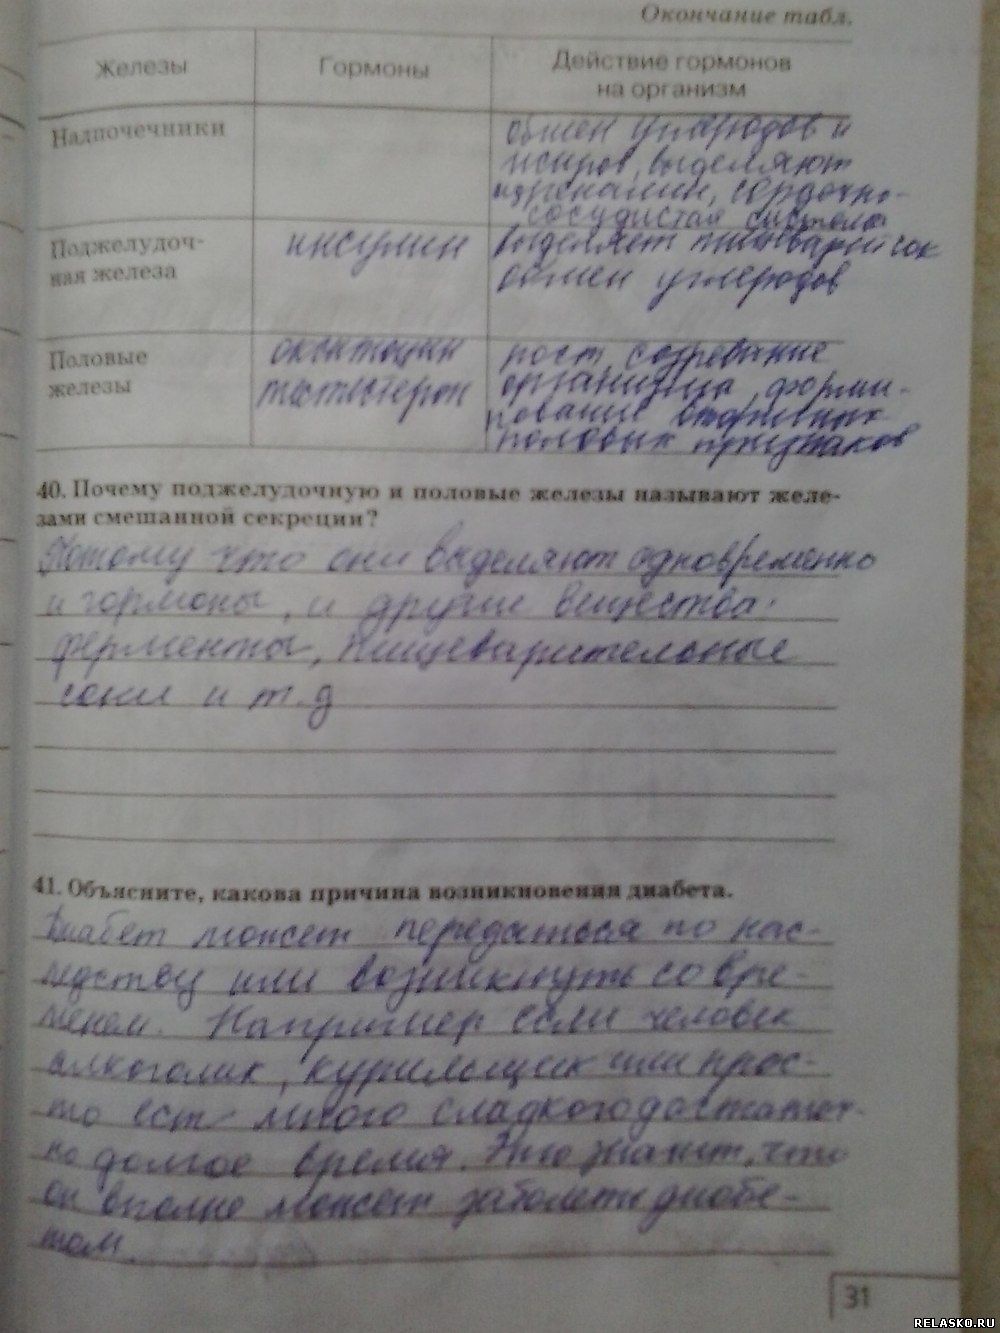 Окончание табл.
Железы
Гормоны
Действие гормонов
на организм
Надпочечники
обмен углеродов и
жиров, выделяют
адреналин, сердечно-
сосудистая система
Поджелудоч-
ная железа
инсулин
выделяет пищеварит сок
обмен углеродов
Половые
железы
окситоцин
тестостерон
рост, созревание
организма, форми-
рование вторичных
половых признаков
40. Почему поджелудочную и половые железы называют желе-
зами смешанной секреции?
Потому что они выделяют одновременно
и гормоны, и другие вещества:
ферменты, пищеварительные
соки и т.д
41. Объясните, какова причина возникновения диабета.
Диабет может передаться по нас-
ледству или возникнуть со вре-
менем. Например если человек
алкоголик, курильщик или прос-
то ест много сладкого достаточ-
но долгое время. Это значит, что
он вполне может заболеть диабе-
том.
31
RELASKO.RU